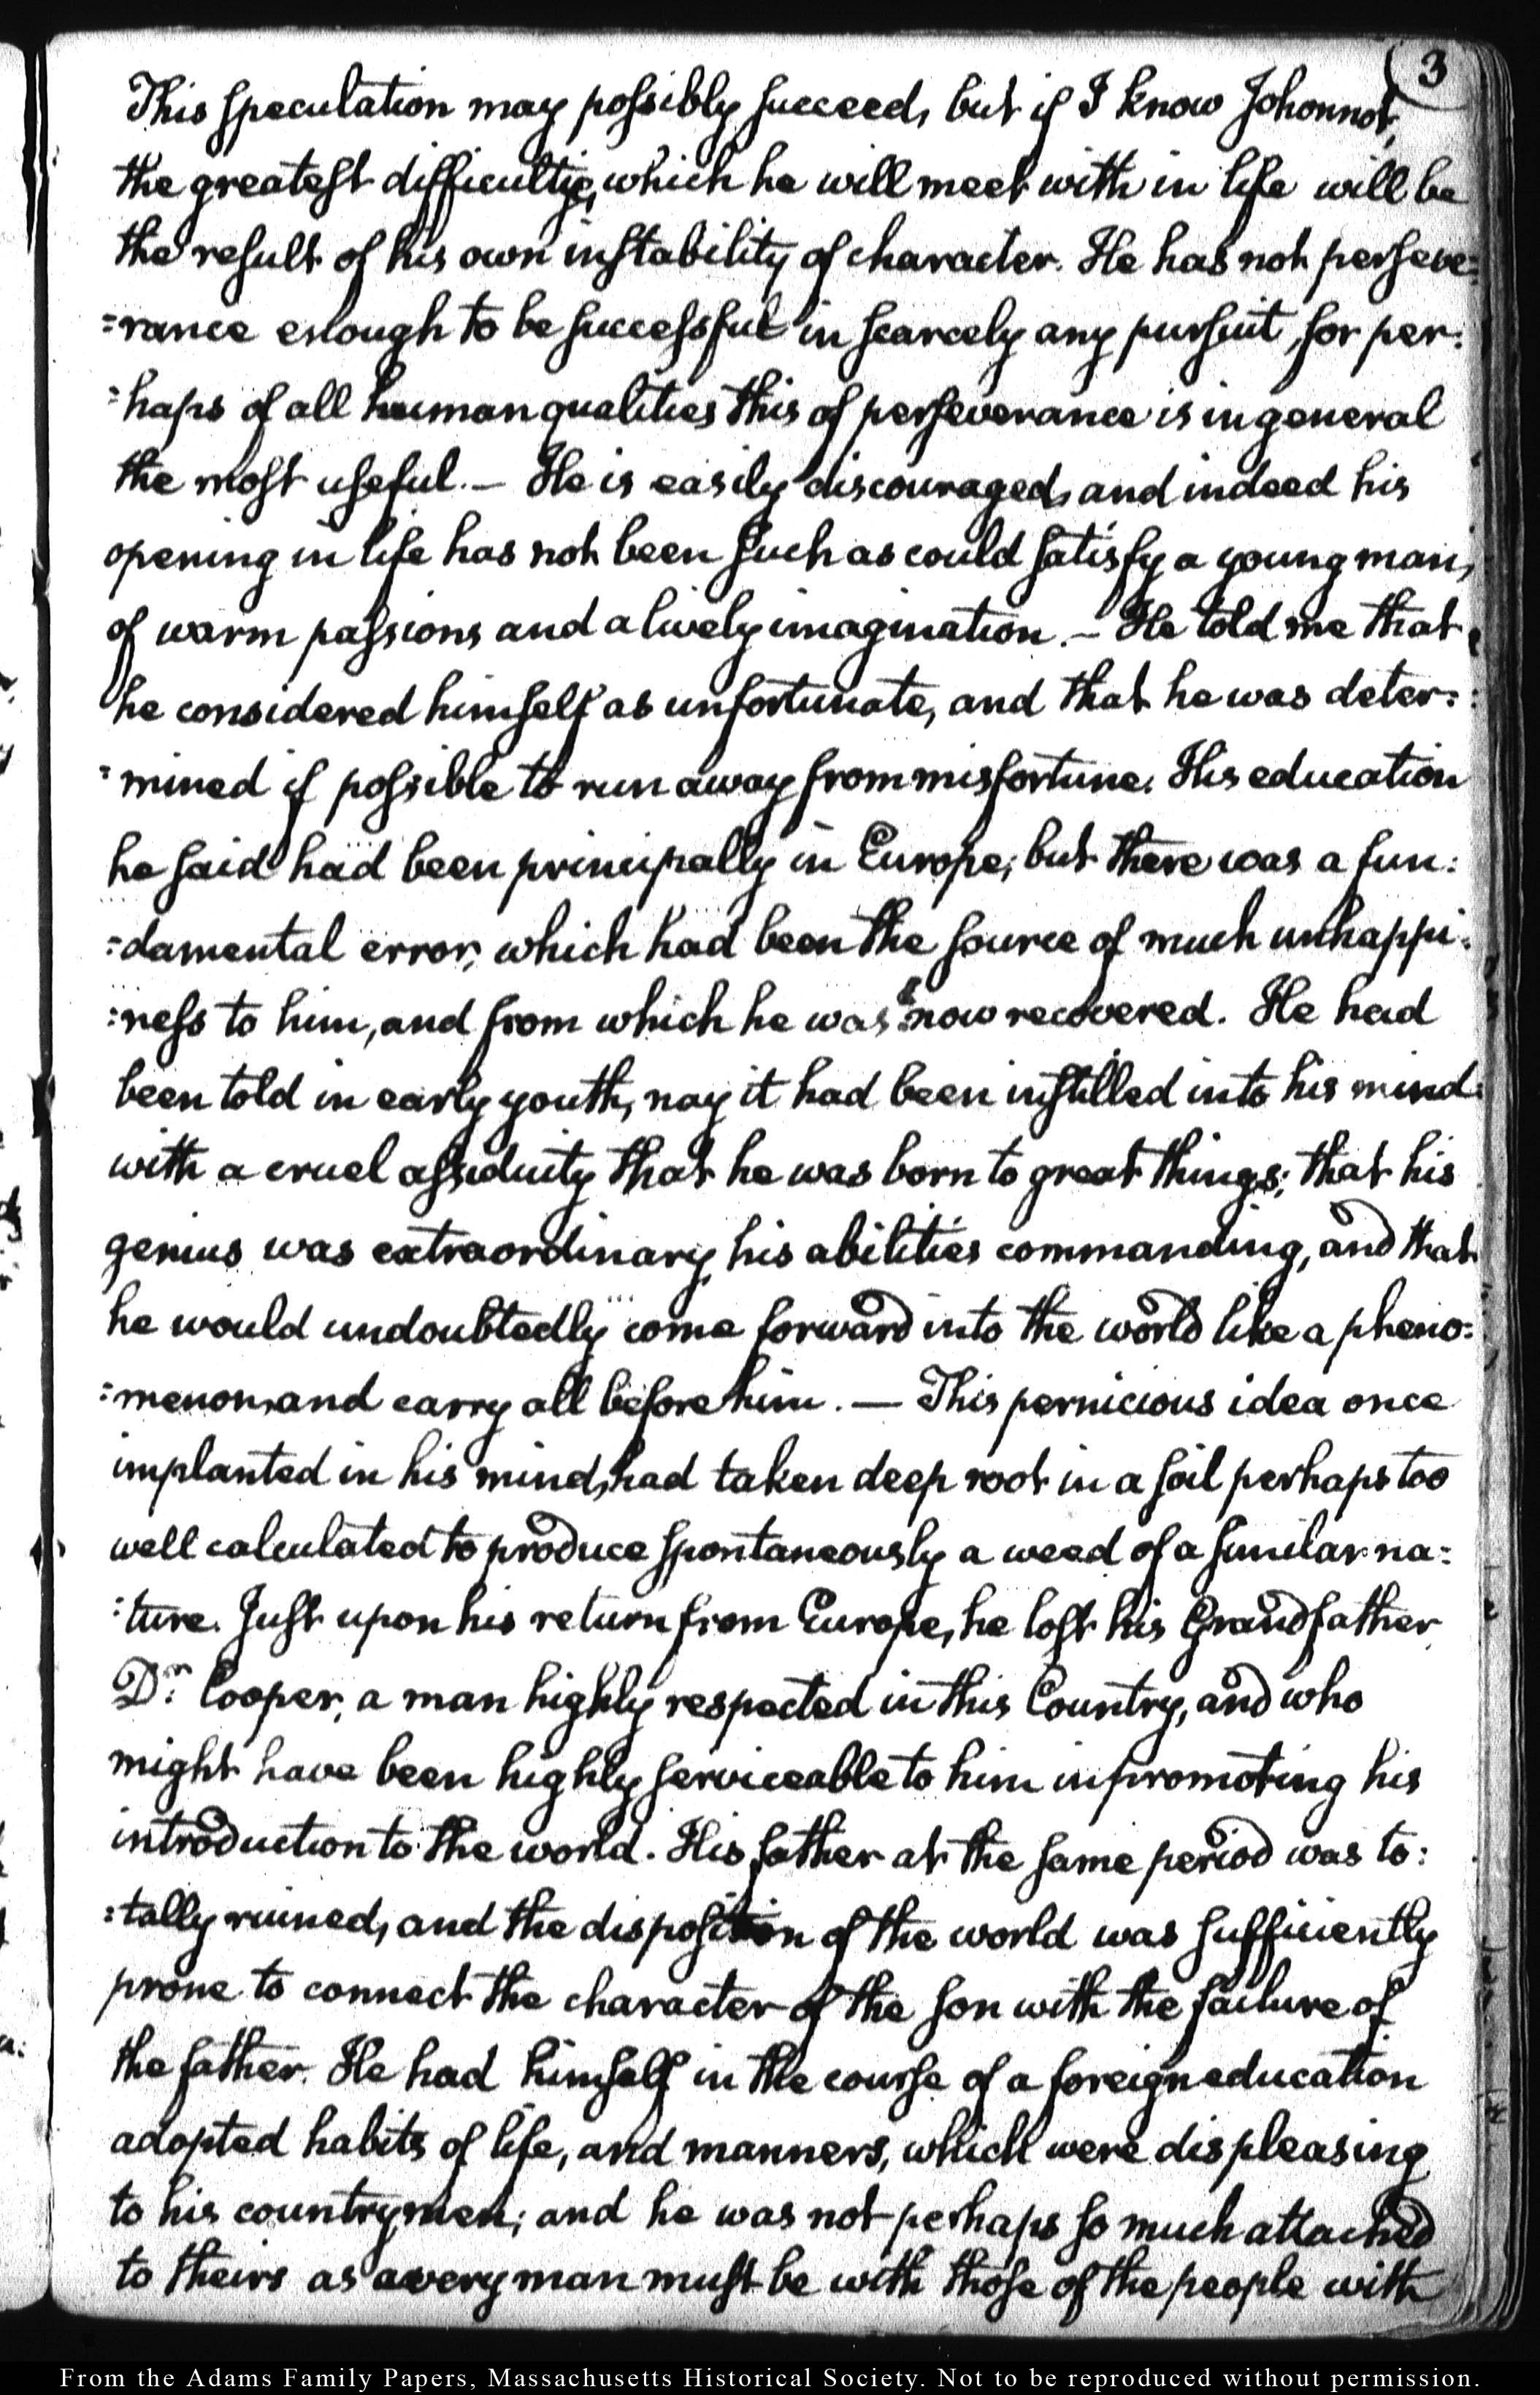 3
This speculation may possibly succeed, but if I know Johonnot,
the greatest difficulties, which he will meet with in life will be
the result of his own instability of character. He has not perseve:
:rance enough to be successful in scarcely any pursuit, for per:
:haps of all human qualities this of perseverance is in general
the most useful. — He is easily discouraged, and indeed his
opening in life has not been such as could satisfy a young man,
of warm passions and a lively imagination. — He told me that
he considered himself as unfortunate, and that he was deter:
:mined if possible to run away from misfortune. His education
he said had been principally in Europe; but there was a fun:
:damental error, which had been the source of much unhappi:
:ness to him, and from which he was now recovered. He had
been told in early youth, nay it had been instilled into his mind
with a cruel assiduity that he was born to great things; that his
genius was extraordinary, his abilities commanding, and that
he would undoubtedly come forward into the world like a pheno:
:menon, and carry all before him. — This pernicious idea once
implanted in his mind, had taken deep root in a soil perhaps too
well calculated to produce spontaneously a weed of a similar na:
:ture. Just upon his return from Europe, he lost his Grandfather
Dr. Cooper, a man highly respected in this Country, and who
might have been highly serviceable to him in promoting his
introduction to the world. His father at the same period was to:
:tally ruined, and the disposition of the world was sufficiently
prone to connect the character of the son with the failure of
the father. He had himself in the course of a foreign education
adopted habits of life, and manners, which were displeasing
to his countrymen; and he was not perhaps so much attached
to theirs as every man must be with those of the people with
From the Adams Family Papers, Massachusetts Historical Society. Not to be reproduced without permission.